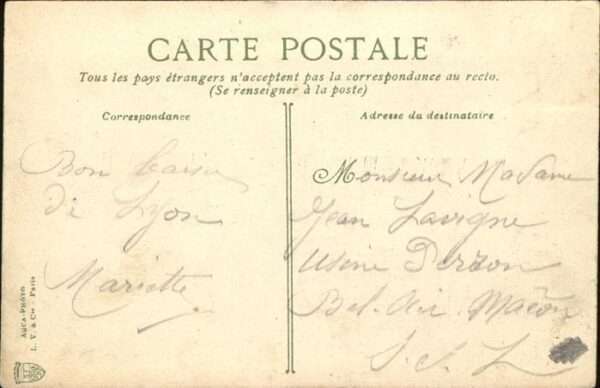 CARTE POSTALE
Tous les pays étrangers n'acceptent pas la correspondance au recto.
(Se renseigner à la poste)
Correspondance
Bon baiser
de Lyon
Mariette
Adresse du destinataire
Monsieur Madame
Jean Lavigne
Usine Perzon
Bel-Air Mâcon
S. S. L
AQUA-PHOTO
L. V. & Cie - Paris